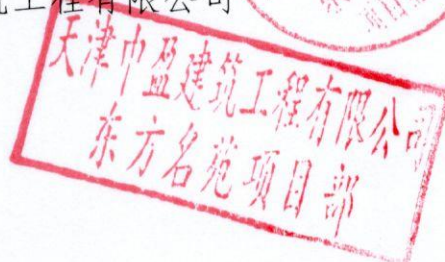 工程有限公司
天津中盈建筑工程有限公司
东方名苑项目部